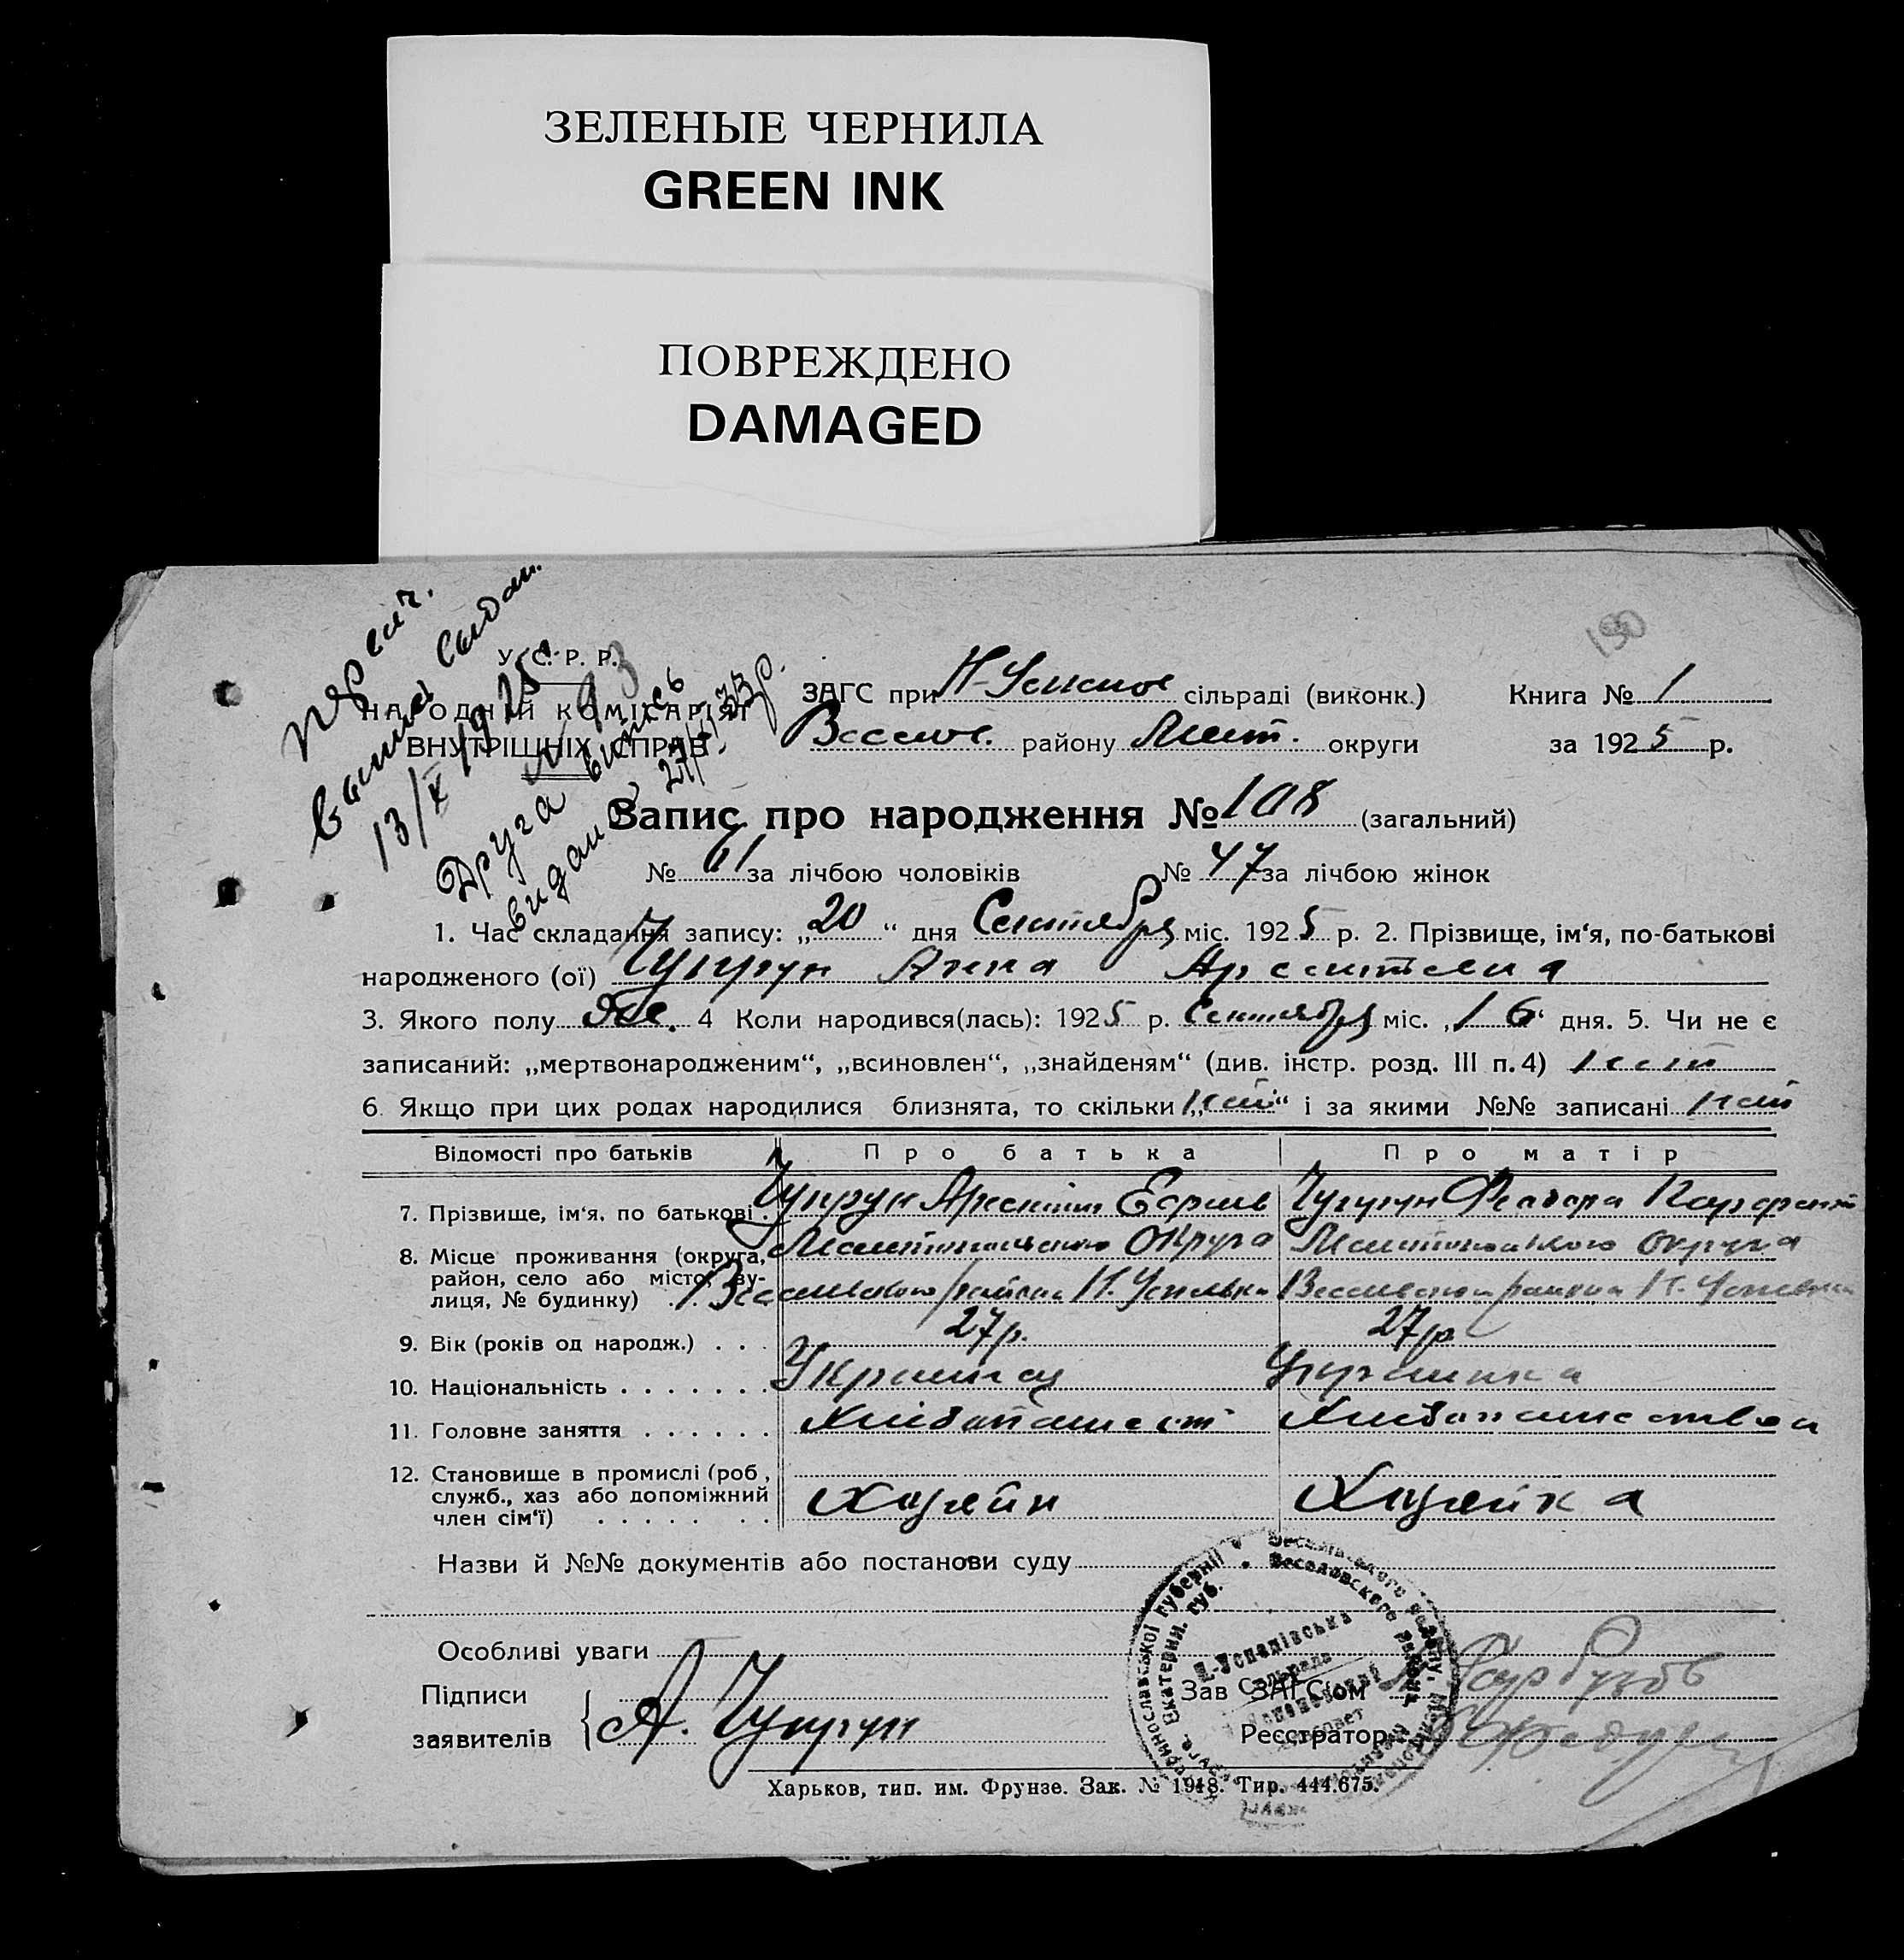 ЗЕЛЕНЫЕ ЧЕРНИЛА
GREEN INK
ПОВРЕЖДЕНО
DAMAGED
190
выпись выдан.
13/X 1925
Друга випись
видана 27/VI 33р.
У. С. Р. Р.
НАРОДНІЙ КОМІСАРІЯТ
ВНУТРІШНІХ СПРАВ
ЗАГС при Н-Успенов сільраді (виконк.) Книга № 1
Веселов. району Мелит. округи за 1925 р.
Запис про народження № 108 (загальний)
№ 61 за лічбою чоловіків № 47 за лічбою жінок
1. Час складання запису: „20“ дня Сентября міс. 1925 р. 2. Прізвище, ім‘я, по-батькові
народженого (ої) Чупрун Анна Арсентеева
3. Якого полу Же. 4 Коли народився(лась): 1925 р. Сентября міс. „16“ дня. 5. Чи не є
записаний: „мертвонародженим“, „всиновлен“, „знайденям“ (див. інстр. розд. III п. 4) нет
6. Якщо при цих родах народилися близнята, то скільки „нет“ і за якими №№ записані нет
Відомості про батьків Про батька Про матір
7. Прізвище, ім‘я, по батькові . Чупрун Арсентий Ефим Чупрун Феодора
8. Місце проживання (округа, Мелитопольского Округа Мелитопольского округа
район, село або місто, ву-
лиця, № будинку) . . Веселовского района Н. Успенвка Веселовского района Н. Успенвка
9. Вік (років од народж.) . . . 27 р. 27 р.
10. Національність . . . . . . . Украинец Украинка
11. Головне заняття . . . . . . Хлебопашест Хлебопашества
12. Становище в промислі (роб.,
служб., хаз або допоміжний
член сім‘ї) . . . . . . . Хозяйн Хозяйка
Назви й №№ документів або постанови суду
Особливі уваги
Підписи
заявителів { А. Чупрун
Зав ЗАГС‘ом
Реєстратор
Веселівського району, Мелитоп
Веселовского района
Н-Успенівська
Сільрада
Сельсовет
Катеринославської губернії
Екатерин. губ.
Харьков, тип. им. Фрунзе. Зак. № 1948. Тир. 444.675.